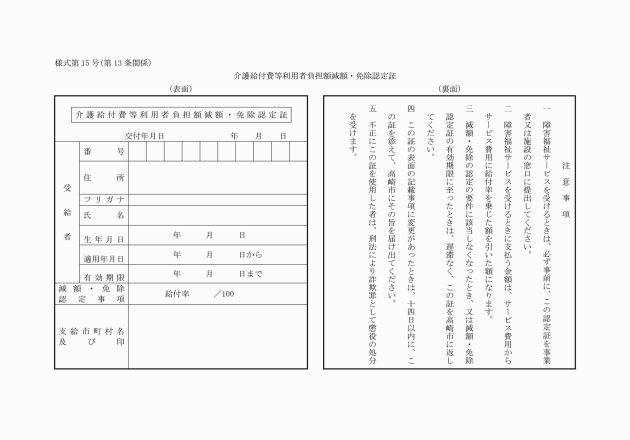 様式第15号(第13条関係)
介護給付費等利用者負担額減額・免除認定証
(表面)
介護給付費等利用者負担額減額・免除認定証
交付年月日　　年　　月　　日
受給者
番号
住所
フリガナ
氏名
生年月日　　年　　月　　日
適用年月日　　年　　月　　日から
有効期限　　年　　月　　日まで
減額・免除
認定事項
給付率　　／100
支給市町村名
及び印
(裏面)
注意事項
一　障害福祉サービスを受けるときは、必ず事前に、この認定証を事業
者又は施設の窓口に提出してください。
二　障害福祉サービスを受けるときに支払う金額は、サービス費用から
サービス費用に給付率を乗じた額を引いた額になります。
三　減額・免除の認定の要件に該当しなくなったとき、又は減額・免除
認定証の有効期限に至ったときは、遅滞なく、この証を高崎市に返し
てください。
四　この証の表面の記載事項に変更があったときは、十四日以内に、こ
の証を添えて、高崎市にその旨を届け出てください。
五　不正にこの証を使用した者は、刑法により詐欺罪として懲役の処分
を受けます。